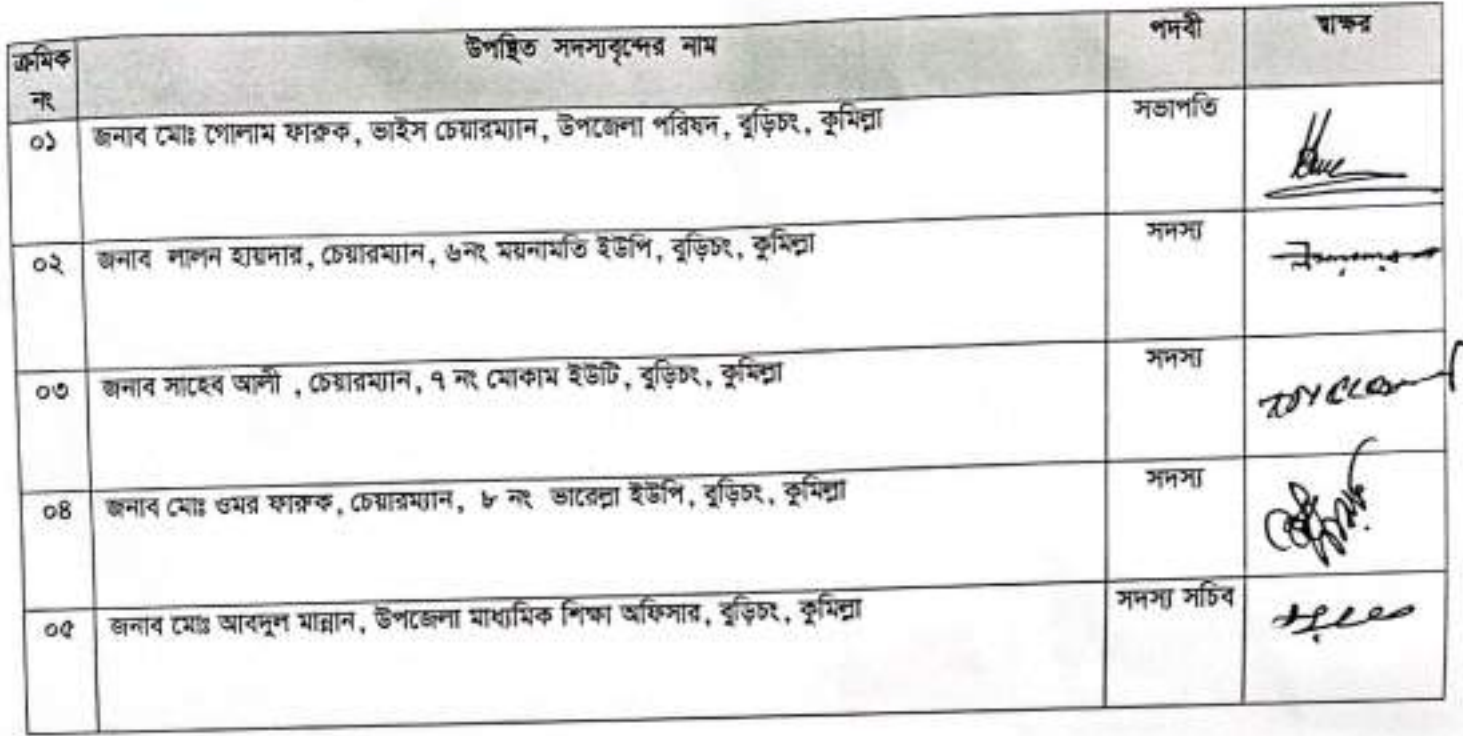 ক্রমিক নং উপস্থিত সদস্যবৃন্দের নাম পদবী স্বাক্ষর
০১ জনাব মোঃ গোলাম ফারুক, ভাইস চেয়ারম্যান, উপজেলা পরিষদ, বুড়িচং, কুমিল্লা সভাপতি
০২ জনাব লালন হায়দার, চেয়ারম্যান, ৬নং ময়নামতি ইউপি, বুড়িচং, কুমিল্লা সদস্য
০৩ জনাব সাহেব আলী , চেয়ারম্যান, ৭ নং মোকাম ইউটি, বুড়িচং, কুমিল্লা সদস্য
০৪ জনাব মোঃ ওমর ফারুক, চেয়ারম্যান, ৮ নং ভারেল্লা ইউপি, বুড়িচং, কুমিল্লা সদস্য
০৫ জনাব মোঃ আবদুল মান্নান, উপজেলা মাধ্যমিক শিক্ষা অফিসার, বুড়িচং, কুমিল্লা সদস্য সচিব